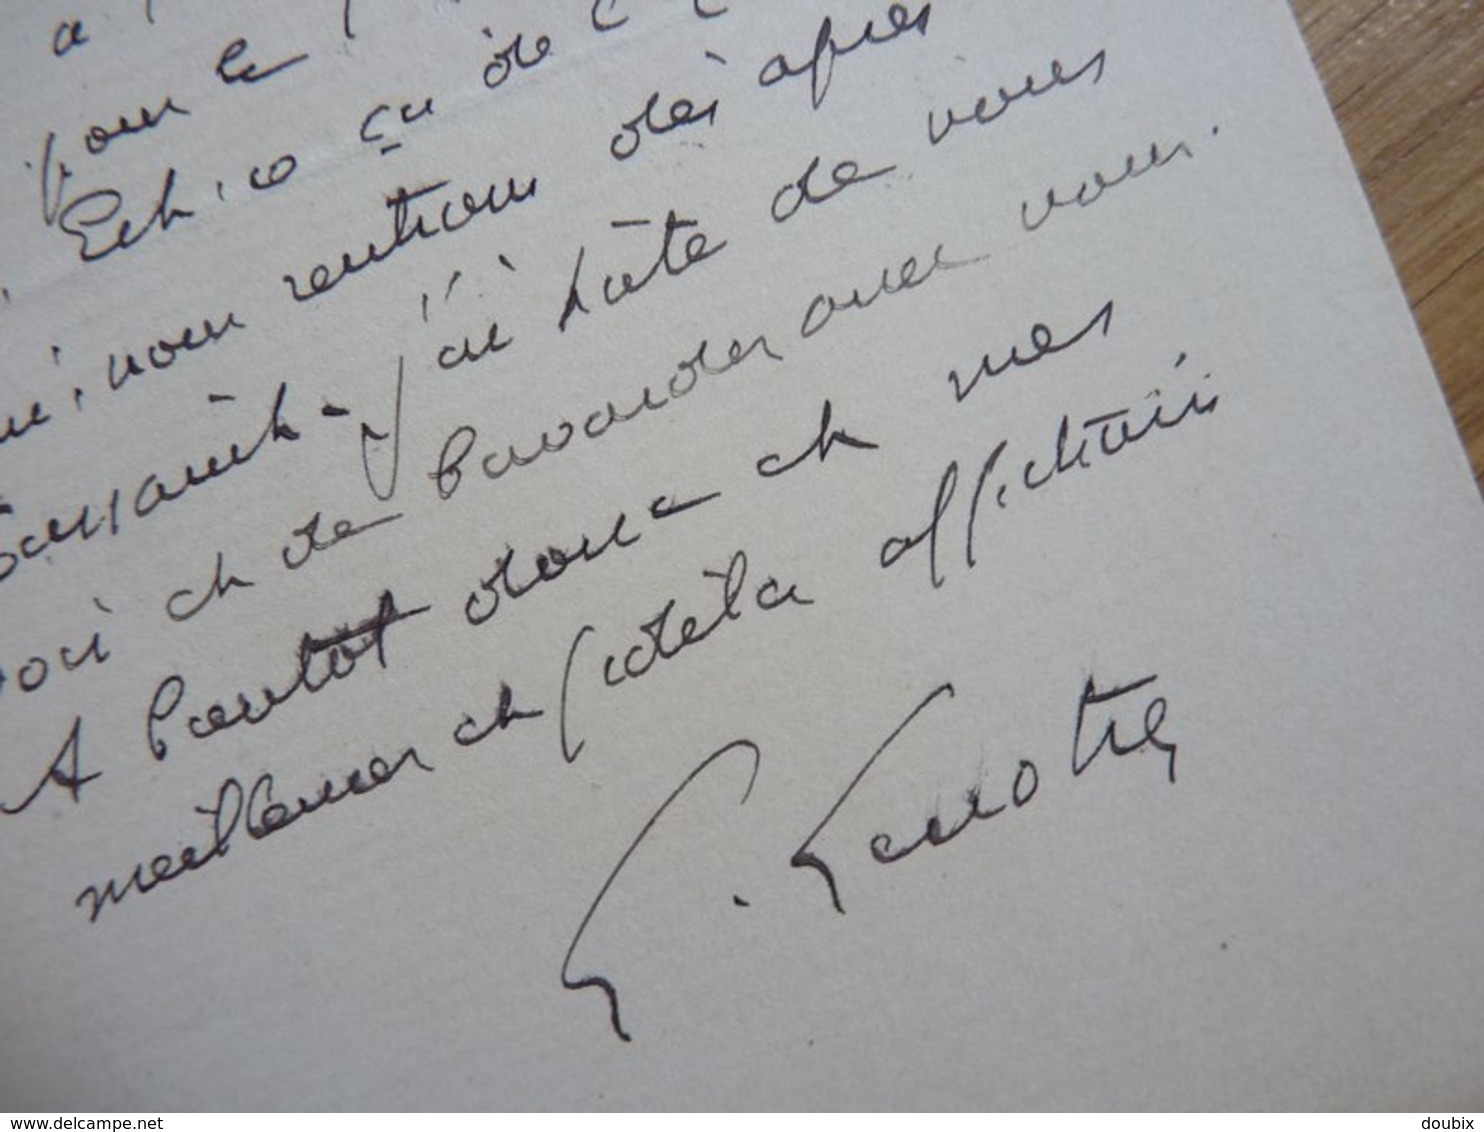 à
pour le
Est-ce çu de
nous rentrons dès après
Toussaint - J'ai hâte de vous
voir et de bavarder avec vous.
A bientôt donc et mes
meilleures et fidèles affections
G. Lenotre
www.delcampe.net
doubix